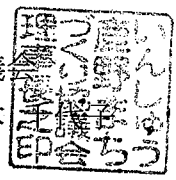 会
千代子
いんしゅう
鹿野まち
づくり協議会
理事長之印